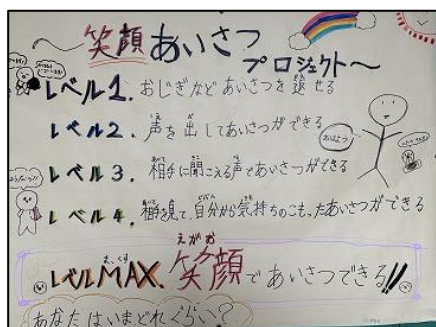 ～笑顔あいさつ
プロジェクト～
レベル1. おじぎなど あいさつを返せる
レベル2. 声を出してあいさつができる
おはよう
レベル3. 相手に聞こえる声であいさつができる
レベル4. 相手を見て、自分から気持ちのこもったあいさつができる
レベルMAX. 笑顔であいさつできる!!
あなたはいまどれぐらい?